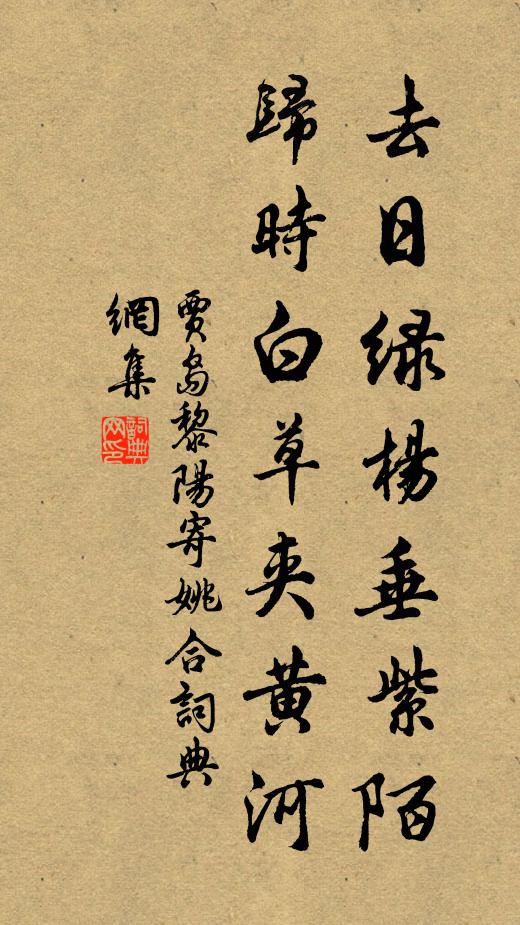 去日绿楊垂紫陌
歸時白草夾黄河
賈島黎陽寄姚合詞典
網集
詞典
网印